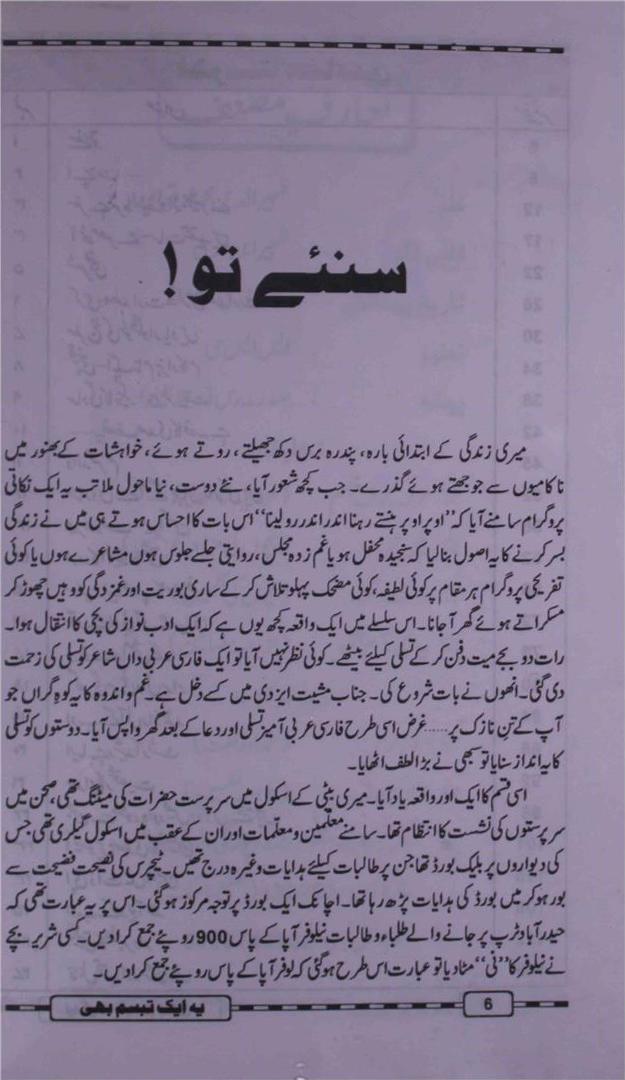 سنئے تو !
میری زندگی کے ابتدائی بارہ، پندرہ برس دکھ جھیلتے، روتے ہوئے، خواہشات کے بھنور میں
ناکامیوں سے جوجھتے ہوئے گذرے۔ جب کچھ شعور آیا، نئے دوست، نیا ماحول ملا تب یہ ایک نکاتی
پروگرام سامنے آیا کہ ”اوپر اوپر ہنستے رہنا اندر اندر رولینا“ اس بات کا احساس ہوتے ہی میں نے زندگی
بسر کرنے کا یہ اصول بنالیا کہ سنجیدہ محفل ہو یا غم زدہ مجلس، روایتی جلسے جلوس ہوں مشاعرے ہوں یا کوئی
تفریحی پروگرام ہر مقام پر کوئی لطیفہ، کوئی مضحک پہلو تلاش کر کے ساری بوریت اور غمزدگی کو وہیں چھوڑ کر
مسکراتے ہوئے گھر آجانا۔ اس سلسلے میں ایک واقعہ کچھ یوں ہے کہ ایک ادب نواز کی بچی کا انتقال ہوا۔
رات دو بجے میت دفن کر کے تسلی کیلئے بیٹھے۔ کوئی نظر نہیں آیا تو ایک فارسی عربی داں شاعر کو تسلی کی زحمت
دی گئی۔ انھوں نے بات شروع کی۔ جناب مشیت ایزدی میں کسے دخل ہے۔ غم و اندوہ کا یہ کوہِ گراں جو
آپ کے تنِ نازک پر ..... غرض اسی طرح فارسی عربی آمیز تسلی اور دعا کے بعد گھر واپس آیا۔ دوستوں کو تسلی
کا یہ انداز سنایا تو سبھی نے بڑا لطف اٹھایا۔
اسی قسم کا ایک اور واقعہ یاد آیا۔ میری بیٹی کے اسکول میں سرپرست حضرات کی میٹنگ تھی، صحن میں
سرپرستوں کی نشست کا انتظام تھا۔ سامنے معلمین و معلمات اور ان کے عقب میں اسکول گیلری تھی جس
کی دیواروں پر بلیک بورڈ تھا جن پر طالبات کیلئے ہدایات وغیرہ درج تھیں۔ ٹیچرس کی نصیحت فضیحت سے
بور ہو کر میں بورڈ کی ہدایات پڑھ رہا تھا۔ اچانک ایک بورڈ پر توجہ مرکوز ہو گئی۔ اس پر یہ عبارت تھی کہ
حیدرآباد ٹرپ پر جانے والے طلباء و طالبات نیلوفر آپا کے پاس 900 روپئے جمع کرا دیں۔ کسی شریر بچے
نے نیلوفر کا ”نی“ مٹا دیا تو عبارت اس طرح ہو گئی کہ لوفر آپا کے پاس روپئے جمع کرا دیں۔
یہ ایک تبسم بھی
6